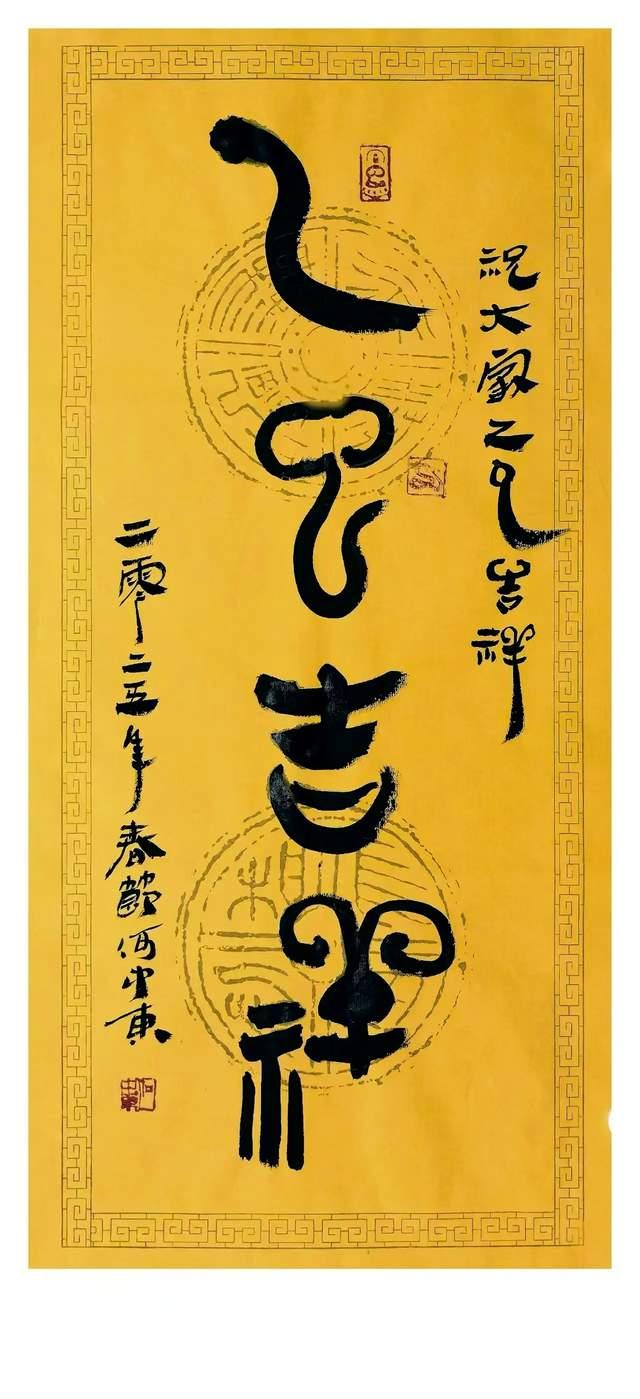 祝大家乙巳吉祥
乙巳吉祥
二零二五年春節何中東